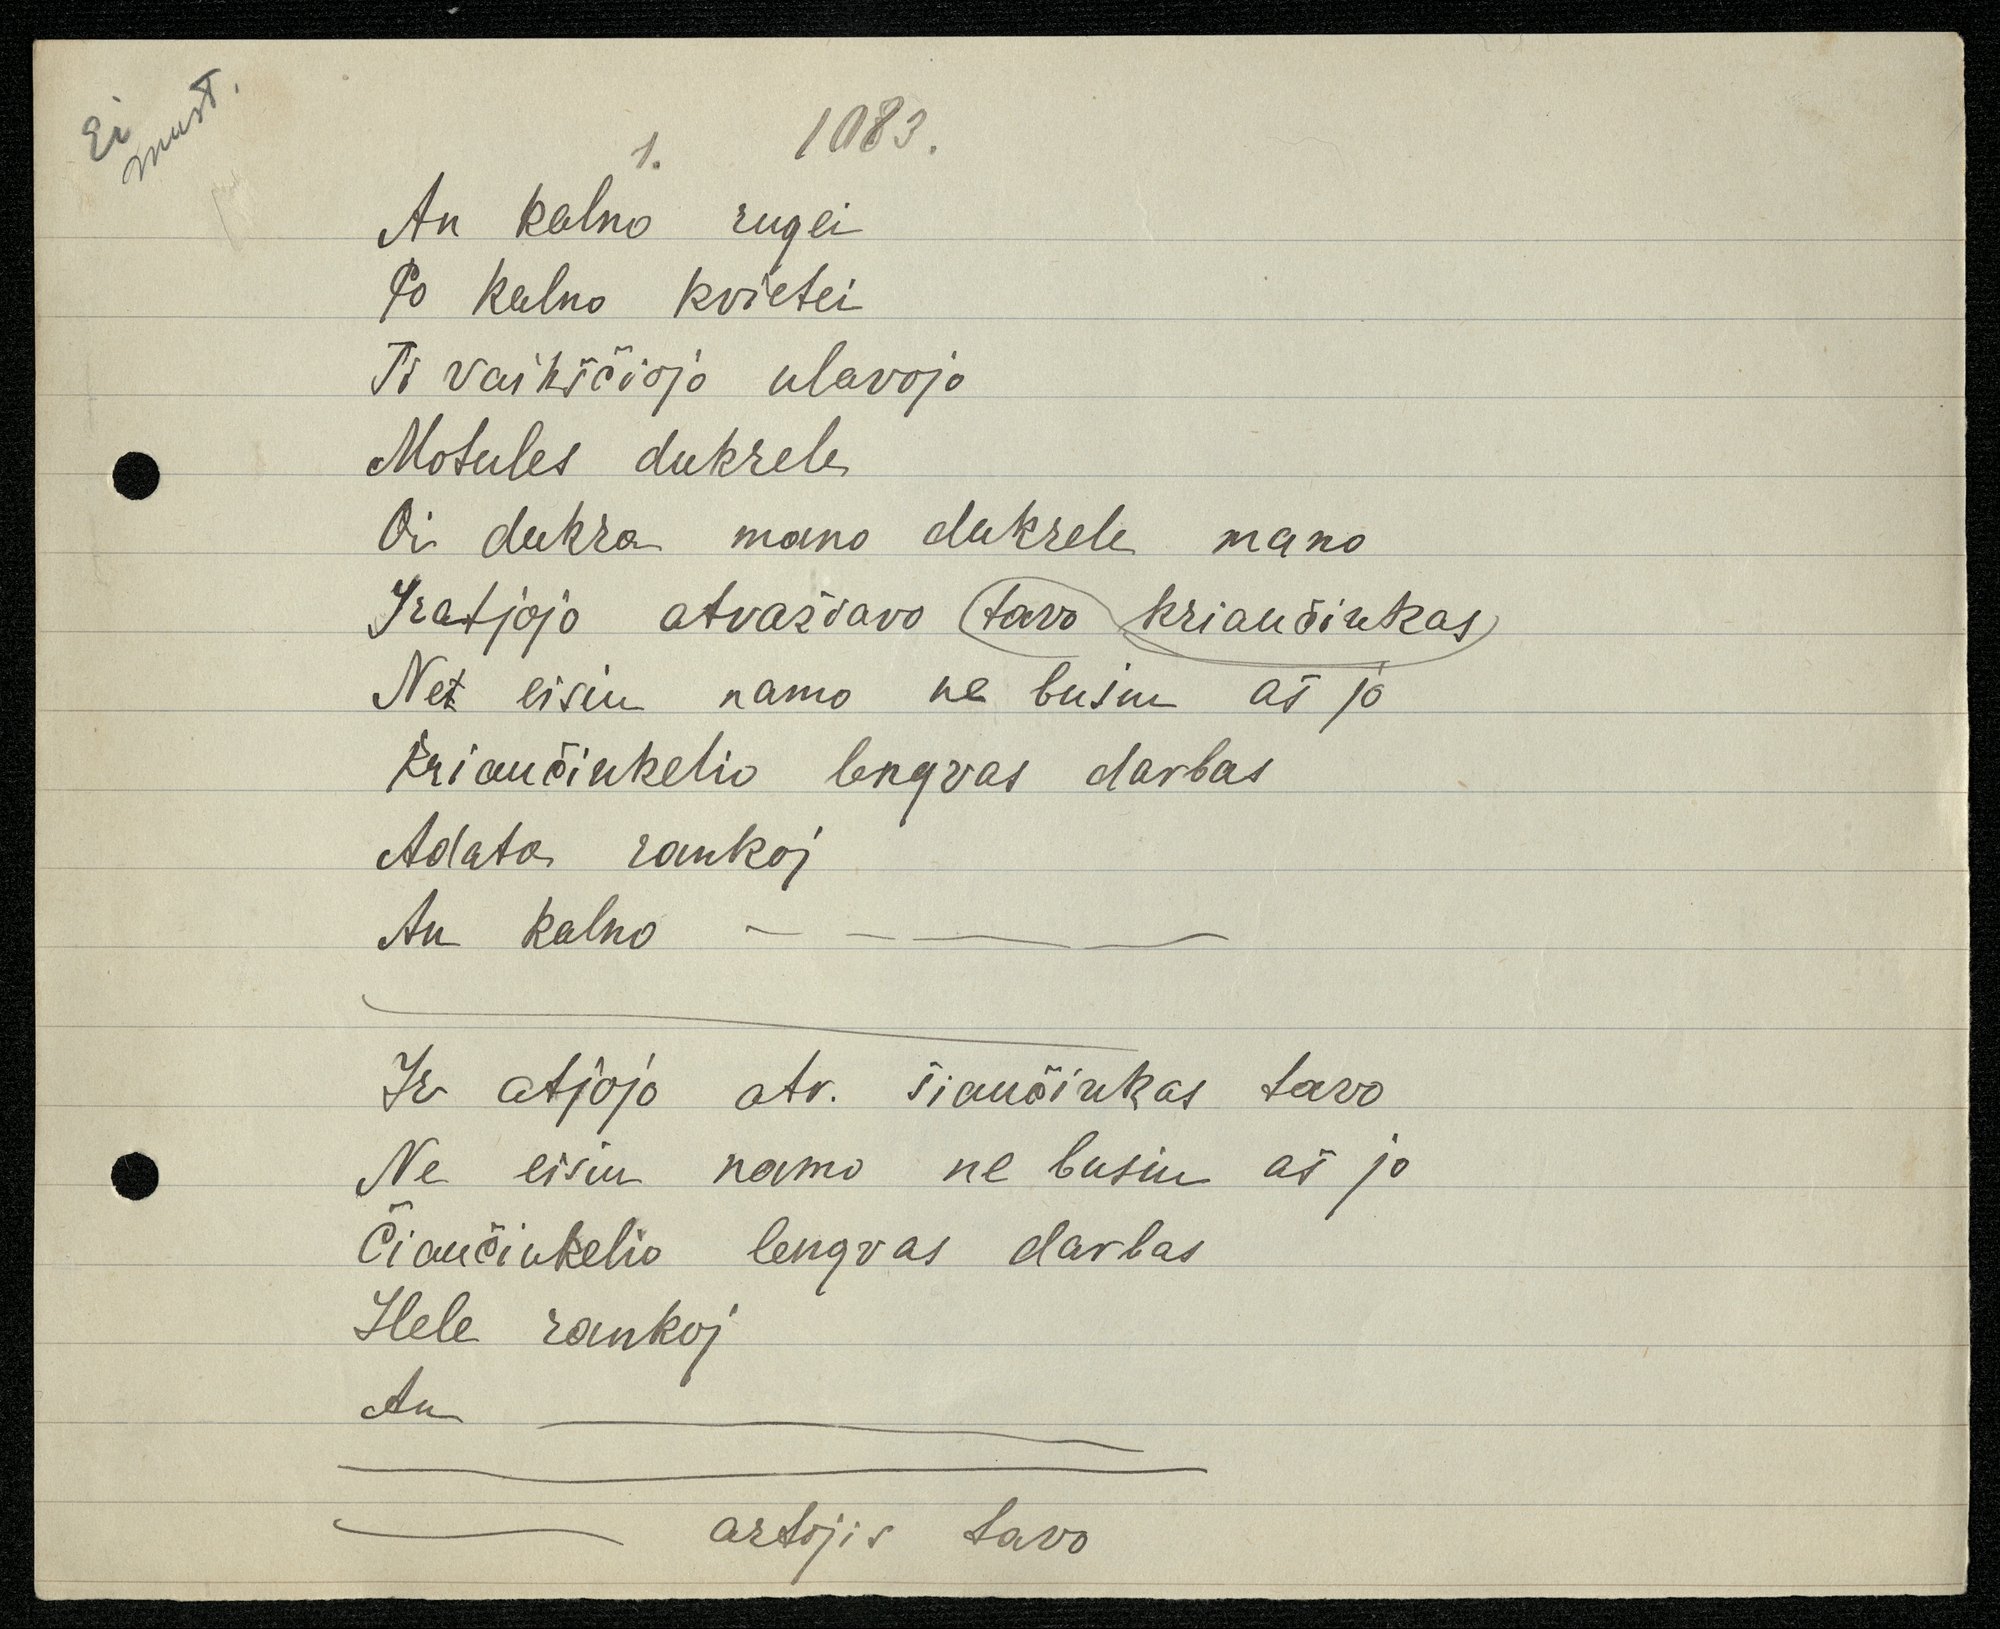 Ei
must.
1. 1083.
An kalno rugei
Po kalno kvietei
Ti vaikščiojo ulavojo
Motules dukrele
Oi dukra mano dukrele mano
Iratjojo atvažiavo tavo kriaučiukas
Net eisiu namo ne busiu aš jo
Kriaučiukelio lengvas darbas
Adata rankoj
An kalno - - — —
Ir atjojo atv. šiaučiukas tavo
Ne eisiu namo ne busiu aš jo
Čiaučiukelio lengvas darbas
Ilele rankoj
An —
— artojis tavo